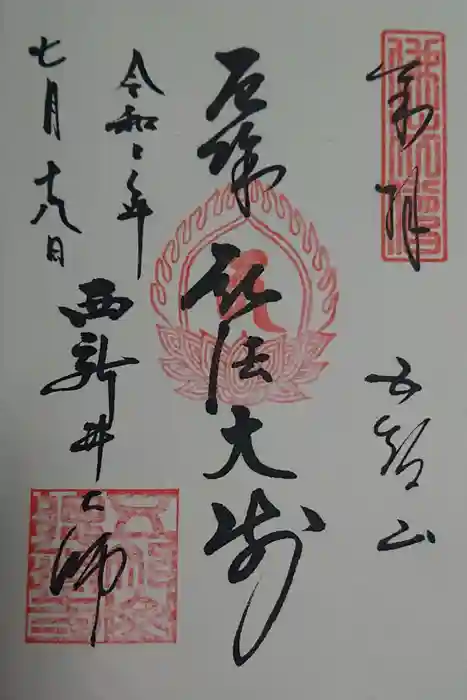 奉拝
五智山
厄除
弘法大師
令和二年
七月十八日
西新井大師